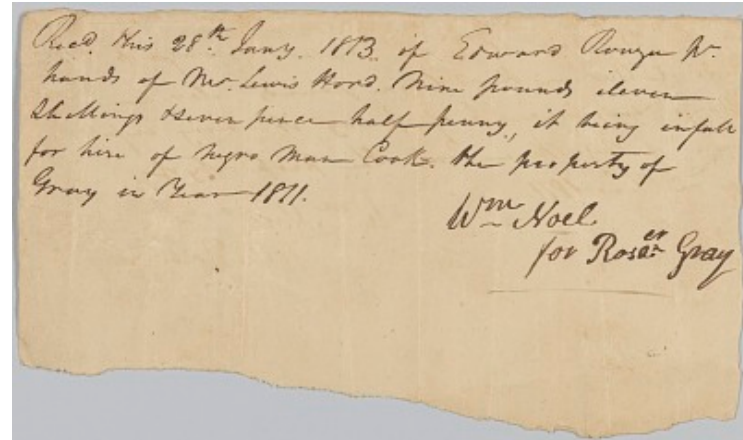 Recd. this 28th. Jany. 1813 of Edward Rouzee pr.
hands of Mr. Lewis Hord. Nine pounds eleven
Shillings & seven pence half penny, it being in full
for hire of Negro Man Cook. the property of
Gray in Year 1811.
Wm Noel
for Gray